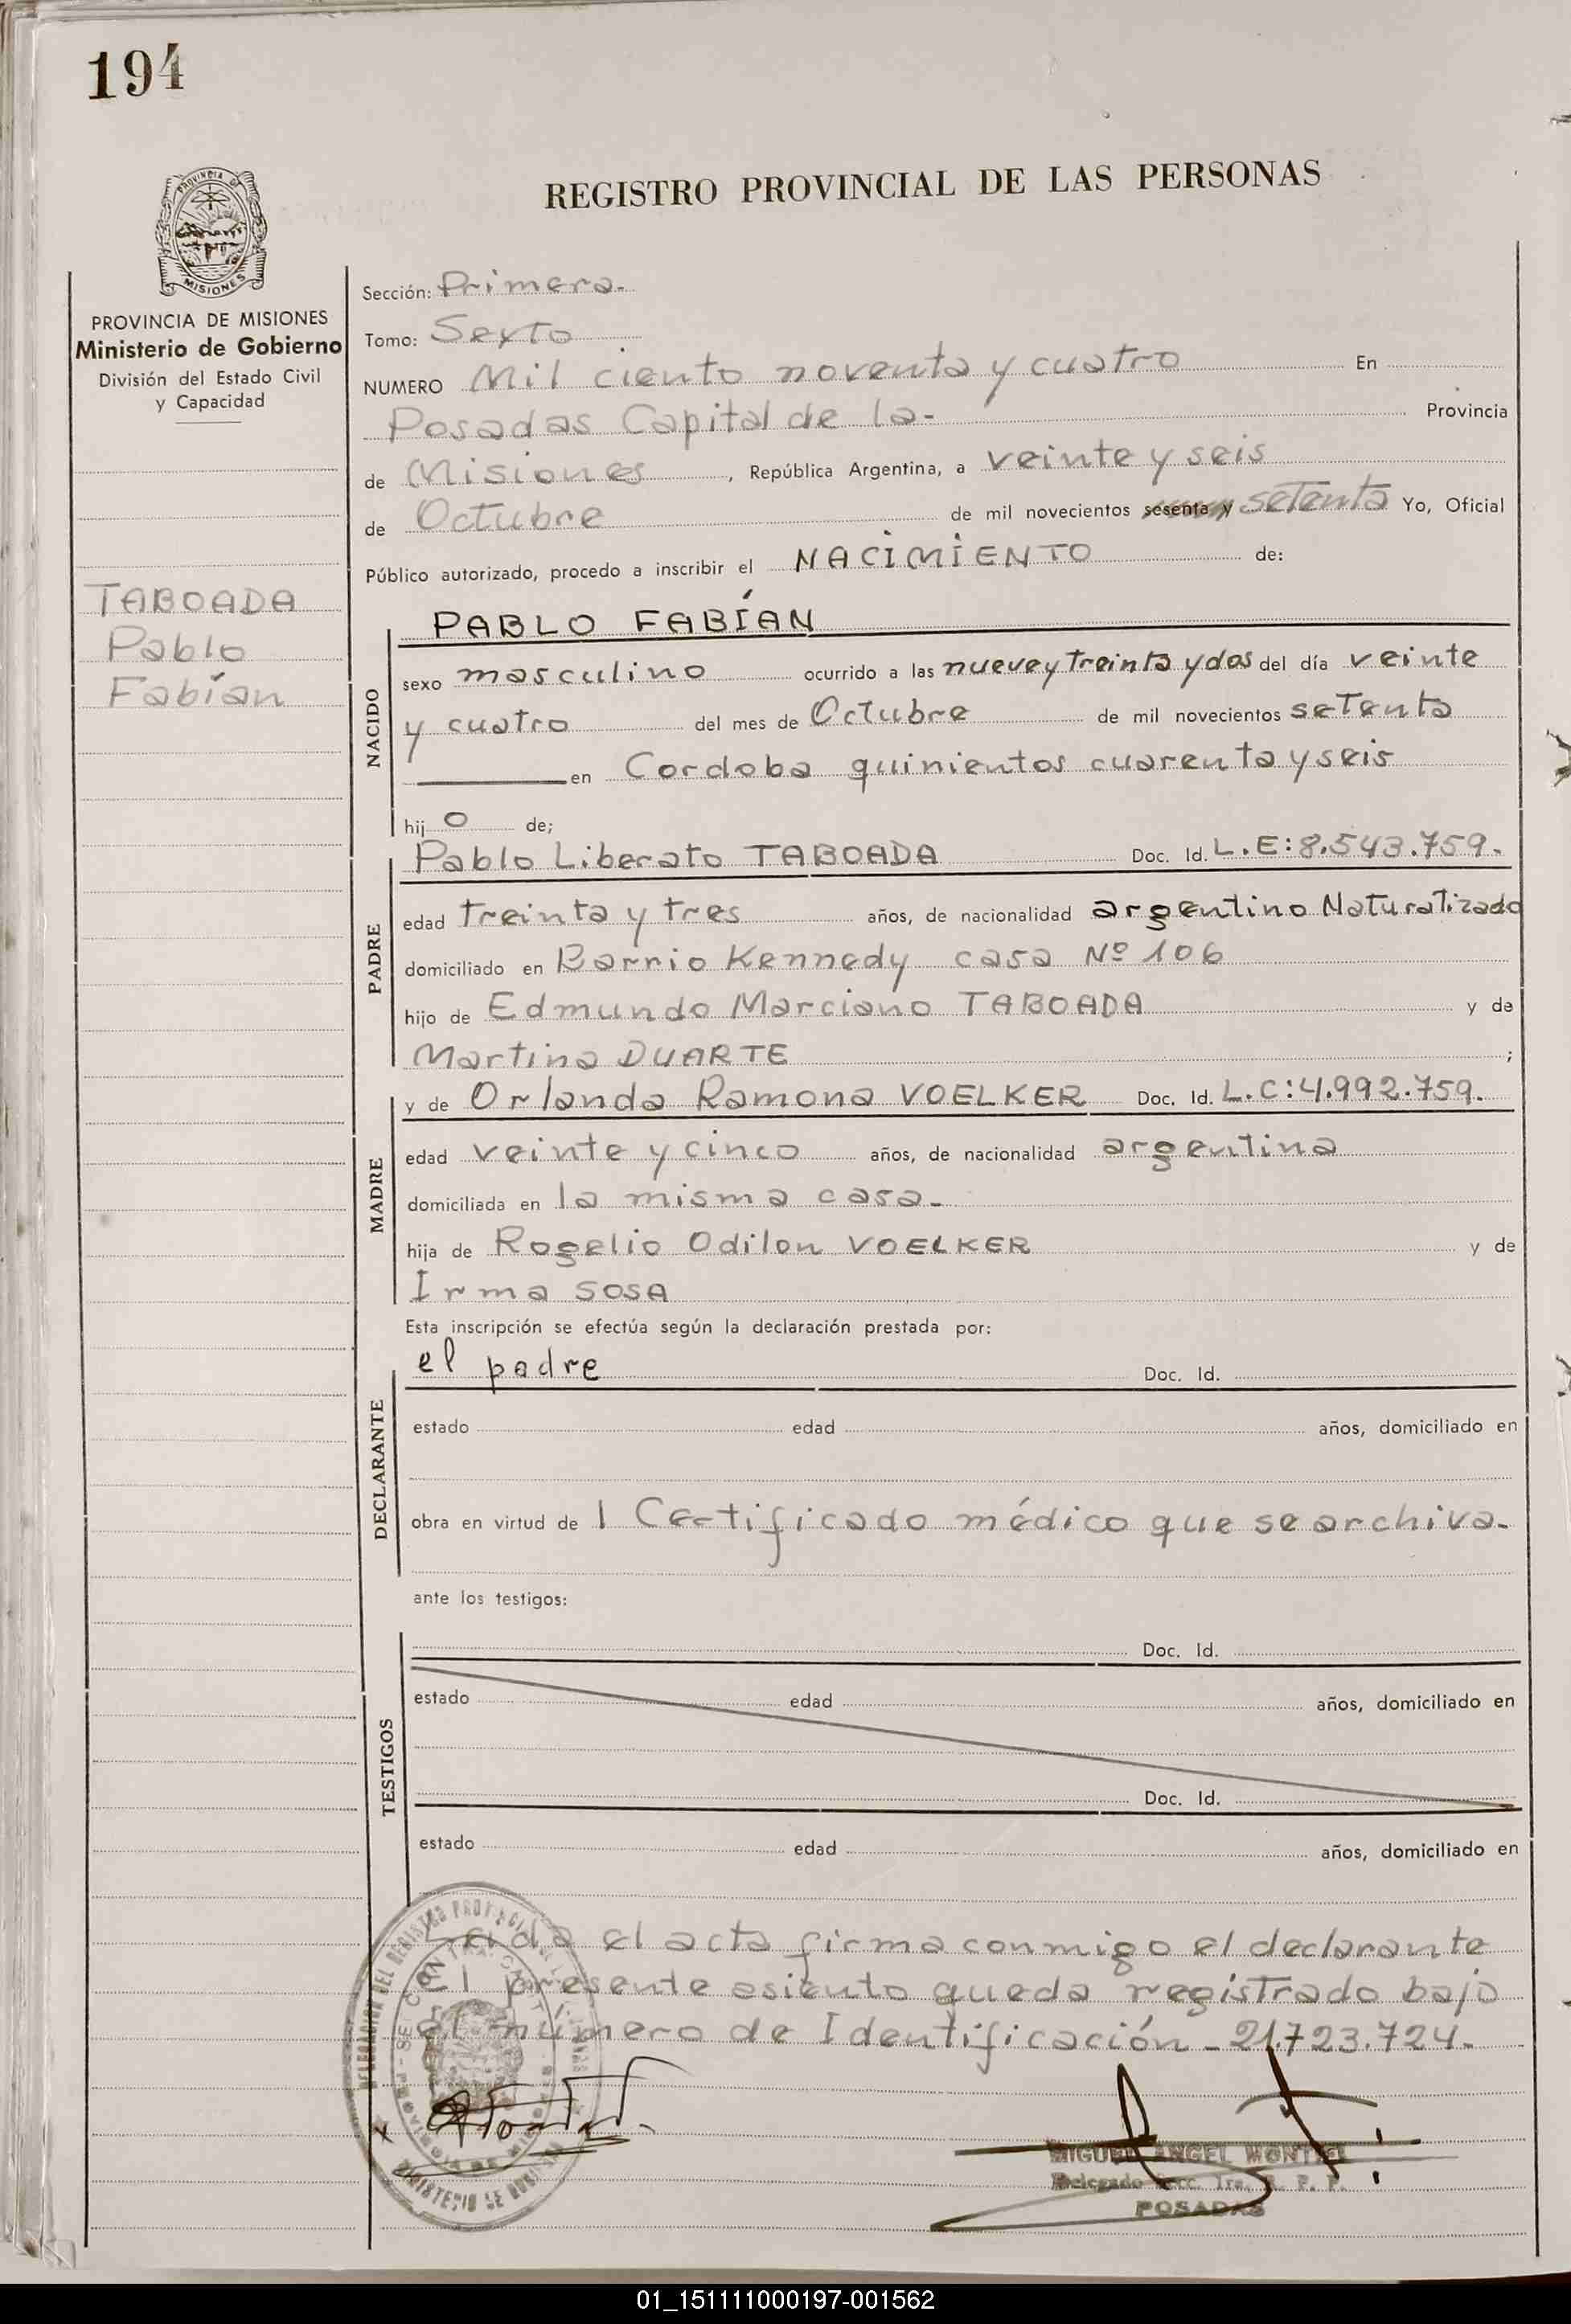 194
PROVINCIA DE
MISIONES
REGISTRO PROVINCIAL DE LAS PERSONAS
PROVINCIA DE MISIONES
Ministerio de Gobierno
División del Estado Civil
y Capacidad
TABOADA
Pablo
Fabían
Sección: Primera.
Tomo: Sexto
NUMERO Mil ciento noventa y cuatro En
Posadas Capital de la- Provincia
de Misiones, República Argentina, a veinte y seis
de Octubre de mil novecientos sesenta y setenta Yo, Oficial
Público autorizado, procedo a inscribir el NACIMIENTO de:
NACIDO
PABLO FABÍAN
sexo masculino ocurrido a las nueve y treinta y dos del día veinte
y cuatro del mes de Octubre de mil novecientos setenta
en Cordoba quinientos cuarenta y seis
hij o de;
PADRE
Pablo Liberato TABOADA Doc. Id. L.E:8.543.759.
edad treinta y tres años, de nacionalidad argentino Naturalizado
domiciliado en Barrio Kennedy casa Nº 106
hijo de Edmundo Marciano TABOADA y de
Martina DUARTE ;
MADRE
y de Orlanda Ramona VOELKER Doc. Id. L.C:4.992.759.
edad veinte y cinco años, de nacionalidad argentina
domiciliada en la misma casa.
hija de Rogelio Odilon VOELKER y de
Irma SOSA
Esta inscripción se efectúa según la declaración prestada por:
DECLARANTE
el padre Doc. Id.
estado edad años, domiciliado en
obra en virtud de l Certificado médico que se archiva.
ante los testigos:
TESTIGOS
Doc. Id.
estado edad años, domiciliado en
Doc. Id.
estado edad años, domiciliado en
Leida el acta firma conmigo el declarante
El presente asiento queda registrado bajo
el número de Identificación - 21.723.724.
MIGUEL ANGEL MONTIEL
Delegado Secc. 1ra. R. P. P.
POSADAS
01_151111000197-001562